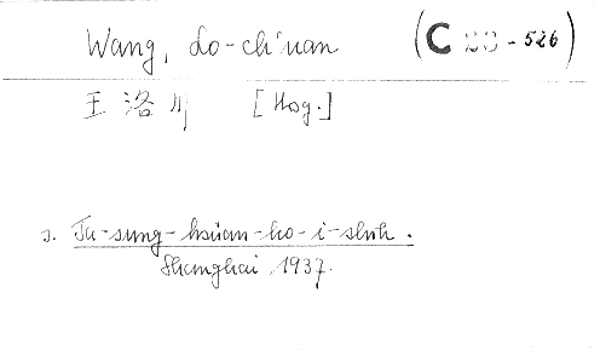 Wang, Lo-ch'uan (C 23-526)
王洛川 [Hog.]
s. Ta-sung-hsüan-ho-i-shih.
Shanghai 1937.